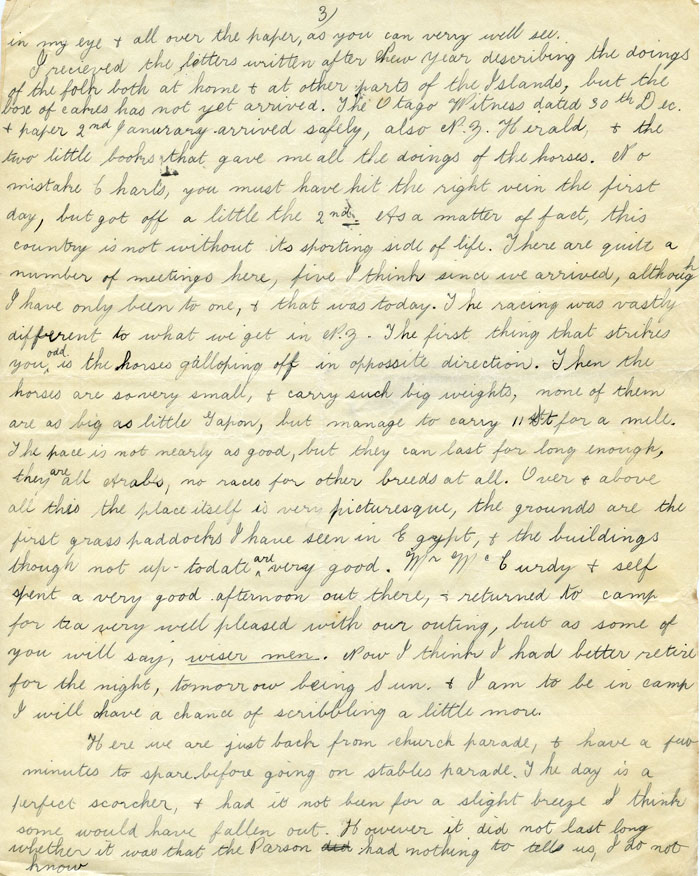 3/
in my eye & all over the paper, as you can verry well see.
I recieved the letters written after New Year describing the doings
of the folk both at home & at other parts of the Islands, but the
box of cakes has not yet arrived. The Otago Witness dated 30th Dec.
& paper 2nd Janurary arrived safely, also N.Z. Herald, & the
two little books that gave me all the doings of the horses. No
mistake Charls, you must have hit the right vein the first
day, but got off a little the 2nd. As a matter of fact, this
country is not without its sporting side of life. There are quite a
number of meetings here, five I think since we arrived, although
I have only been to one, & that was today. The racing was vastly
different to what we get in N.Z. The first thing that strikes
you odd is the horses galloping off in oppossite direction. Then the
horses are so very small, & carry such big weights, none of them
are as big as little Gapon, but manage to carry 11 St for a mile.
The pace is not nearly as good, but they can last for long enough,
they are all Arabs, no races for other breeds at all. Over & above
all this the place itself is very picturesque, the grounds are the
first grass paddocks I have seen in Egypt, & the buildings
though not up-todate are very good. Mr McCurdy & self
spent a very good afternoon out there, & returned to camp
for tea very well pleased with our outing, but as some of
you will say, wiser men. Now I think I had better retire
for the night, tomorrow being Sun. & I am to be in camp
I will have a chance of scribbling a little more.
Here we are just back from church parade, & have a few
minutes to spare before going on stables parade. The day is a
perfect scorcher, & had it not been for a slight breeze I think
some would have fallen out. However it did not last long
whether it was that the Parson did had nothing to tell us, I do not
know